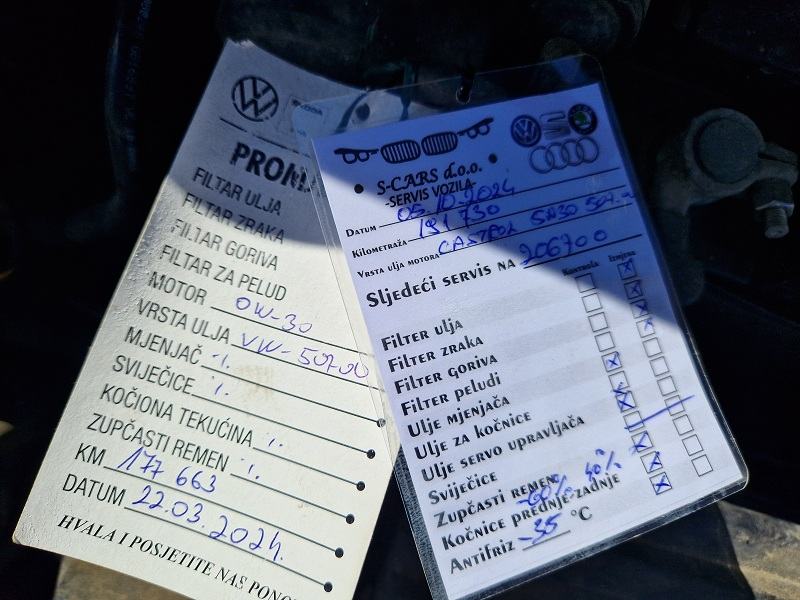 ŠKODA
PROMJ
FILTAR ULJA
FILTAR ZRAKA
FILTAR GORIVA
FILTAR ZA PELUD
MOTOR 0W-30
VRSTA ULJA VW-50700
MJENJAČ ./.
SVIJEĆICE ./.
KOČIONA TEKUĆINA ./.
ZUPČASTI REMEN ./.
KM 177 663
DATUM 22.03.2024.
HVALA I POSJETITE NAS PONO
S-CARS d.o.o.
-SERVIS VOZILA-
Datum 05.10.2024
Kilometraža 191 730
Vrsta ulja motora CASTROL 5W30 507.-
Sljedeći servis na 206700
Kontrola Izmjena
Filter ulja
Filter zraka
Filter goriva
Filter peludi
Ulje mjenjača
Ulje za kočnice
Ulje servo upravljača
Svijećice
Zupčasti remen
Kočnice prednje-zadnje 60% 40%
Antifriz -35 °C